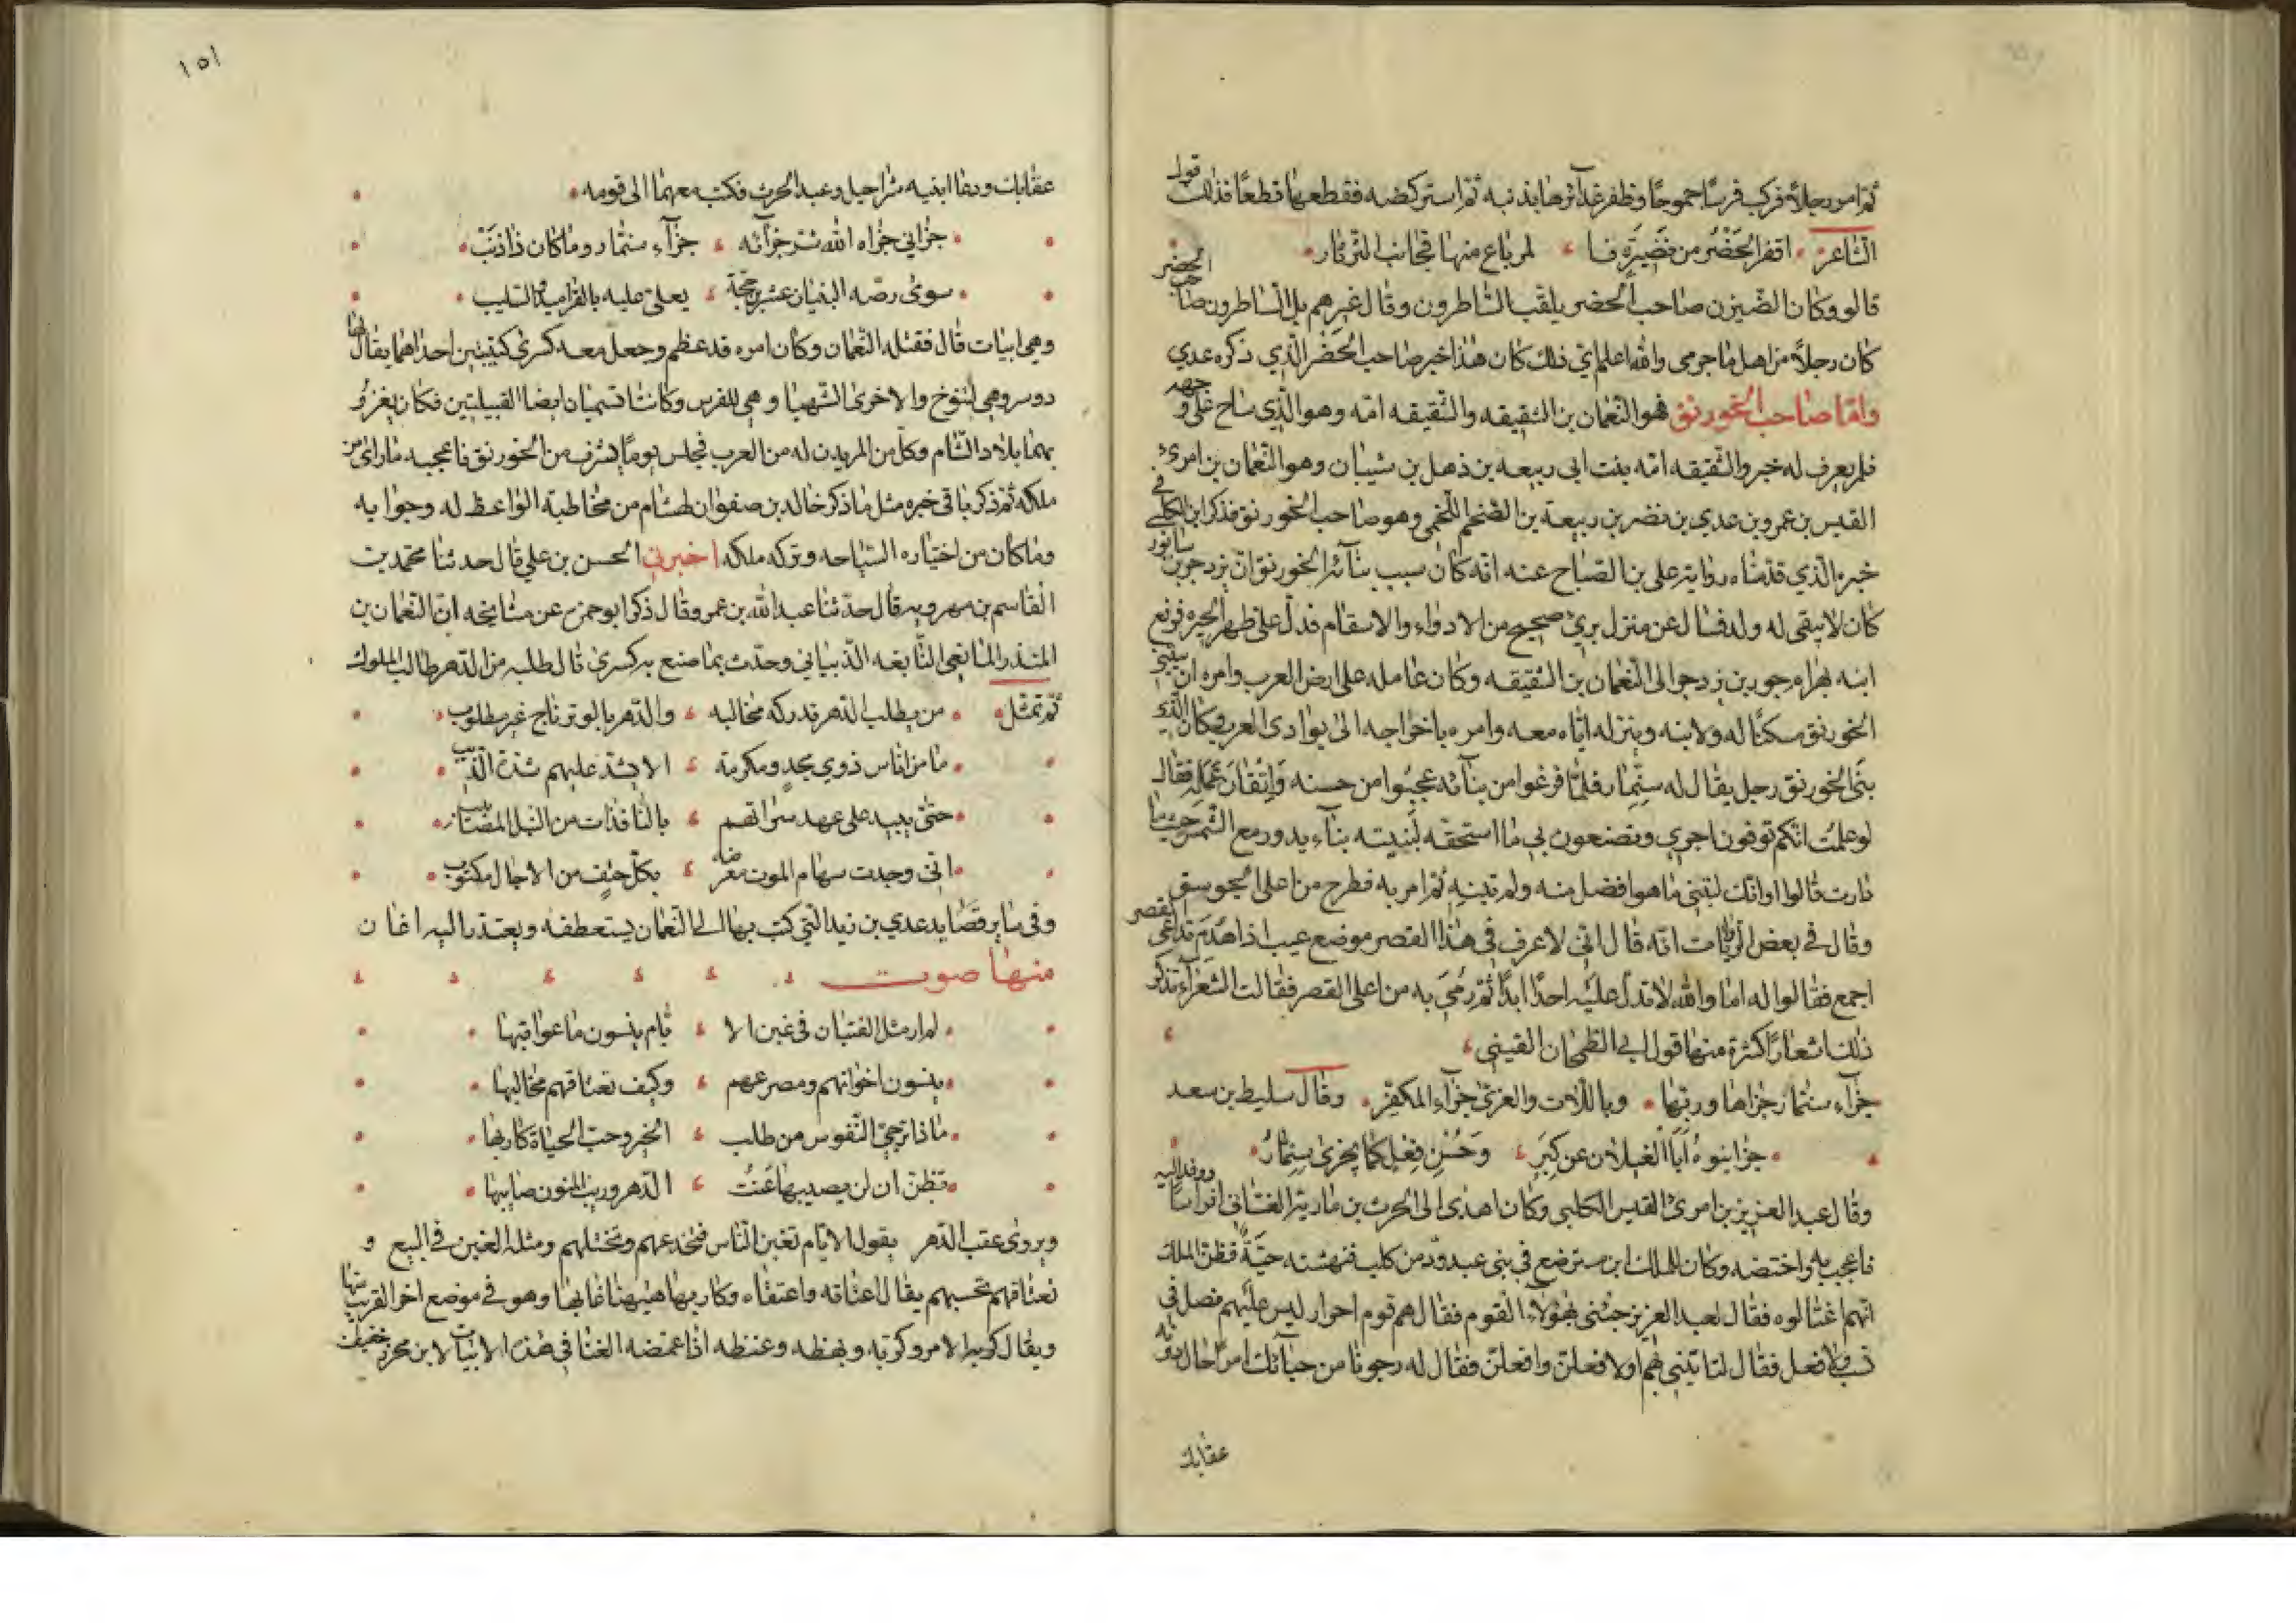 ثم امر رجلا فركب فرسا جموحا وظفر غدائرها بذنبه ثم استركضه فقطعها قطعا فذلك قول
الشاعر اقفر الحضر من نضيرة فا لمرباع منها فجانب الثرثار
قالو وكان الضيزن صاحب الحضر يلقب الساطرون وقال غيرهم بل الساطرون صاحب الحضر
كان رجلا من اهل باجرمى والله اعلم اي ذلك كان هذا خبر صاحب الحضر الذي ذكره عدي
واما صاحب الخورنق فهو النعمان بن الشقيقه والشقيقه امه وهو الذي ساح على وجهه
فلم يعرف له خبر والشقيقه امه بنت ابي ربيعه بن ذهل بن شيبان وهو النعمان بن امرئ
القيس بن عمرو بن عدي بن نضر بن ربيعة بن الضخم اللخمي وهو صاحب الخورنق فذكر ابن الكلبي في
خبره الذي قدمناه رواية علي بن الصباح عنه انه كان سبب بنائه الخورنق ان يزدجر بن سابور
كان لا يبقى له ولد فسال عن منزل برئ صحيح من الادواء والاسقام فدل على ظهر الحيره فدفع
ابنه بهرام جور بن يزدجر الى النعمان بن الشقيقه وكان عامله على ارض العرب وامره ان يبني
الخورنق مسكنا له ولابنه وينزله اياه معه وامره باخراجه الى بوادى العرب وكان الذي
بنى الخورنق رجل يقال له سنمار فلما فرغوا من بنائه عجبوا من حسنه واتقان عمله فقال
لو علمت انكم توفون اجري وتصنعون بي ما استحقه لبنيته بناء يدور مع الشمس حيث ما
دارت قالوا وانك لتبني ما هو افضل منه ولم تبنه ثم امر به فطرح من اعلى الجوسق
وقال في بعض الروايات انه قال اني لاعرف في هذا القصر موضع عيب اذا هدم تداعى القصر
اجمع فقالوا له اما والله لا تدل عليه احدا ابدا ثم رمي به من اعلى القصر فقالت الشعراء تذكر
ذلك اشعارا كثرة منها قول ابي الطمحان القيني
جزاء سنمار جزاها وربها وباللات والعزى جزاء المكفر وقال سليط بن سعد
جزا بنوه ابا الغيلان عن كبر وحسن فعل كما يجزى سنمار
وقال عبد العزيز بن امرئ القيس الكلبي وكان اهدى الى الحرث بن مارية الغساني افراسا ووفد اليه
فاعجب به واختصه وكان للملك ابن مسترضع في بنى عبد ود من كلب فنهشته حية فظن الملك
انهم اغتالوه فقال لعبد العزيز جئني بهؤلاء القوم فقال هم قوم احرار ليس عليهم فضل في
نسب ولا فعل فقال لتاتيني بهم اولا فعلن وافعلن فقال له رجونا من حبائك امرا حال دونه
عقابك
١٥١
عقابك ودعا ابنيه شراحيل وعبد الحرث فكتب معهما الى قومه
جزاني جزاه الله شر جزائه جزاء سنمار وما كان ذا ذنب
سوى رصه البنيان عشرين حجة يعلى عليه بالقراميد والسكب
وهي ابيات قال فقتله النعمان وكان امره قد عظم وجعل معه كسرى كتيبتين احداهما يقال لها
دوسر وهي لتنوخ والاخرى الشهبا وهي للفرس وكانتا تسميان ايضا القبيلتين فكان يغزو
بهما بلاد الشام وكل من لم يدن له من العرب فجلس يوما يشرف من الخورنق فاعجبه ما راى من
ملكه ثم ذكر باقى خبره مثل ما ذكر خالد بن صفوان لهشام من مخاطبة الواعظ له وجوابه
وما كان من اختياره السياحه وتركه ملكه اخبرني الحسن بن علي قال حدثنا محمد بن
القاسم بن مهرويه قال حدثنا عبد الله بن عمر وقال ذكر ابو حمزه عن مشايخه ان النعمان بن
المنذر لما نعي النابغه الذبياني وحدث بما صنع به كسرى قال طلبه من الدهر طالب الملوك
ثم تمثل من يطلب الدهر تدركه مخالبه والدهر بالوتر ناج غير مطلوب
ما من اناس ذوي مجد ومكرمة الا يشد عليهم شدة الذيب
حتى يبيد على عهد سراتهم بالنافذات من النبل المصاييب
انى وجدت سهام الموت معرضة بكل حتف من الاجال مكتوب
وفى ساير قصايد عدي بن زيد التي كتب بها الى النعمان يستعطفه ويعتذر اليه اغان
منها صوت
لم ار مثل الفتيان في غبن الا يام ينسون ما عواقبها
ينسون اخوانهم ومصرعهم وكيف تعتاقهم مخالبها
ماذا ترجي النفوس من طلب الخير وحب الحياة كاربها
تظن ان لن يصيبها عنت الدهر وريب المنون صايبها
ويروى عقب الدهر يقول الايام تغبن الناس فتخدعهم وتختلهم ومثله الغبن في البيع و
تعتاقهم تحبسهم يقال اعتاقه واعتقاه وكاربها هيهنا غابها وهو في موضع اخر القريب منها
ويقال كربه الامر وكرثه وبهظه وغنظه اذا غمضه الغنا في هذه الابيات لابن محرز خفيف